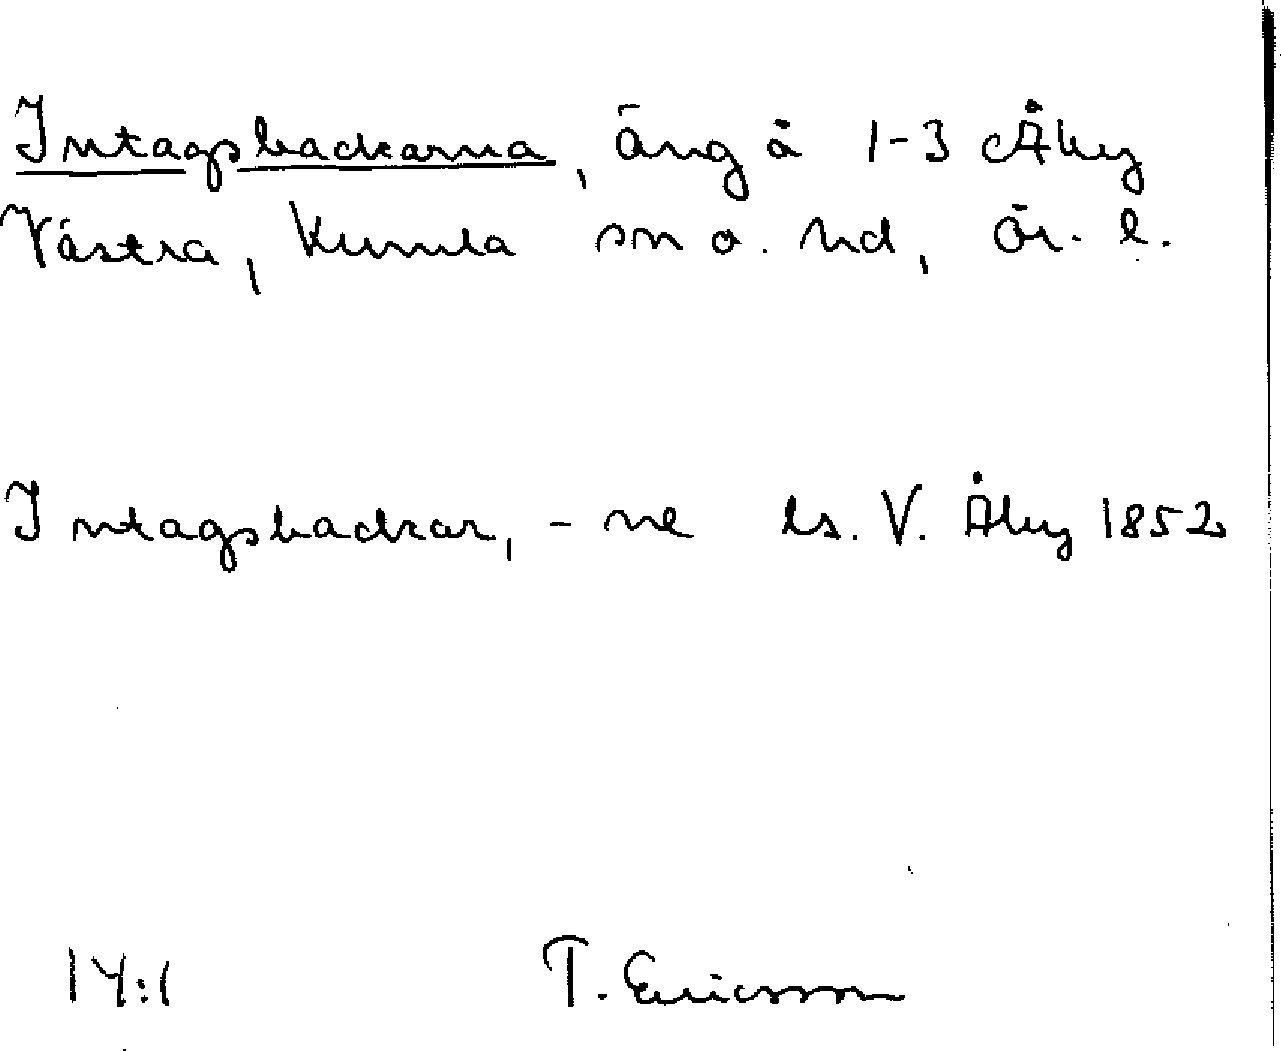 Intagsbackarna, äng å 1-3 Åby
Västra, Kumla sn o. hd, Ör. l.
Intagsbackar, -ne ls. V. Åby 1852
14:1 T. Ericsson